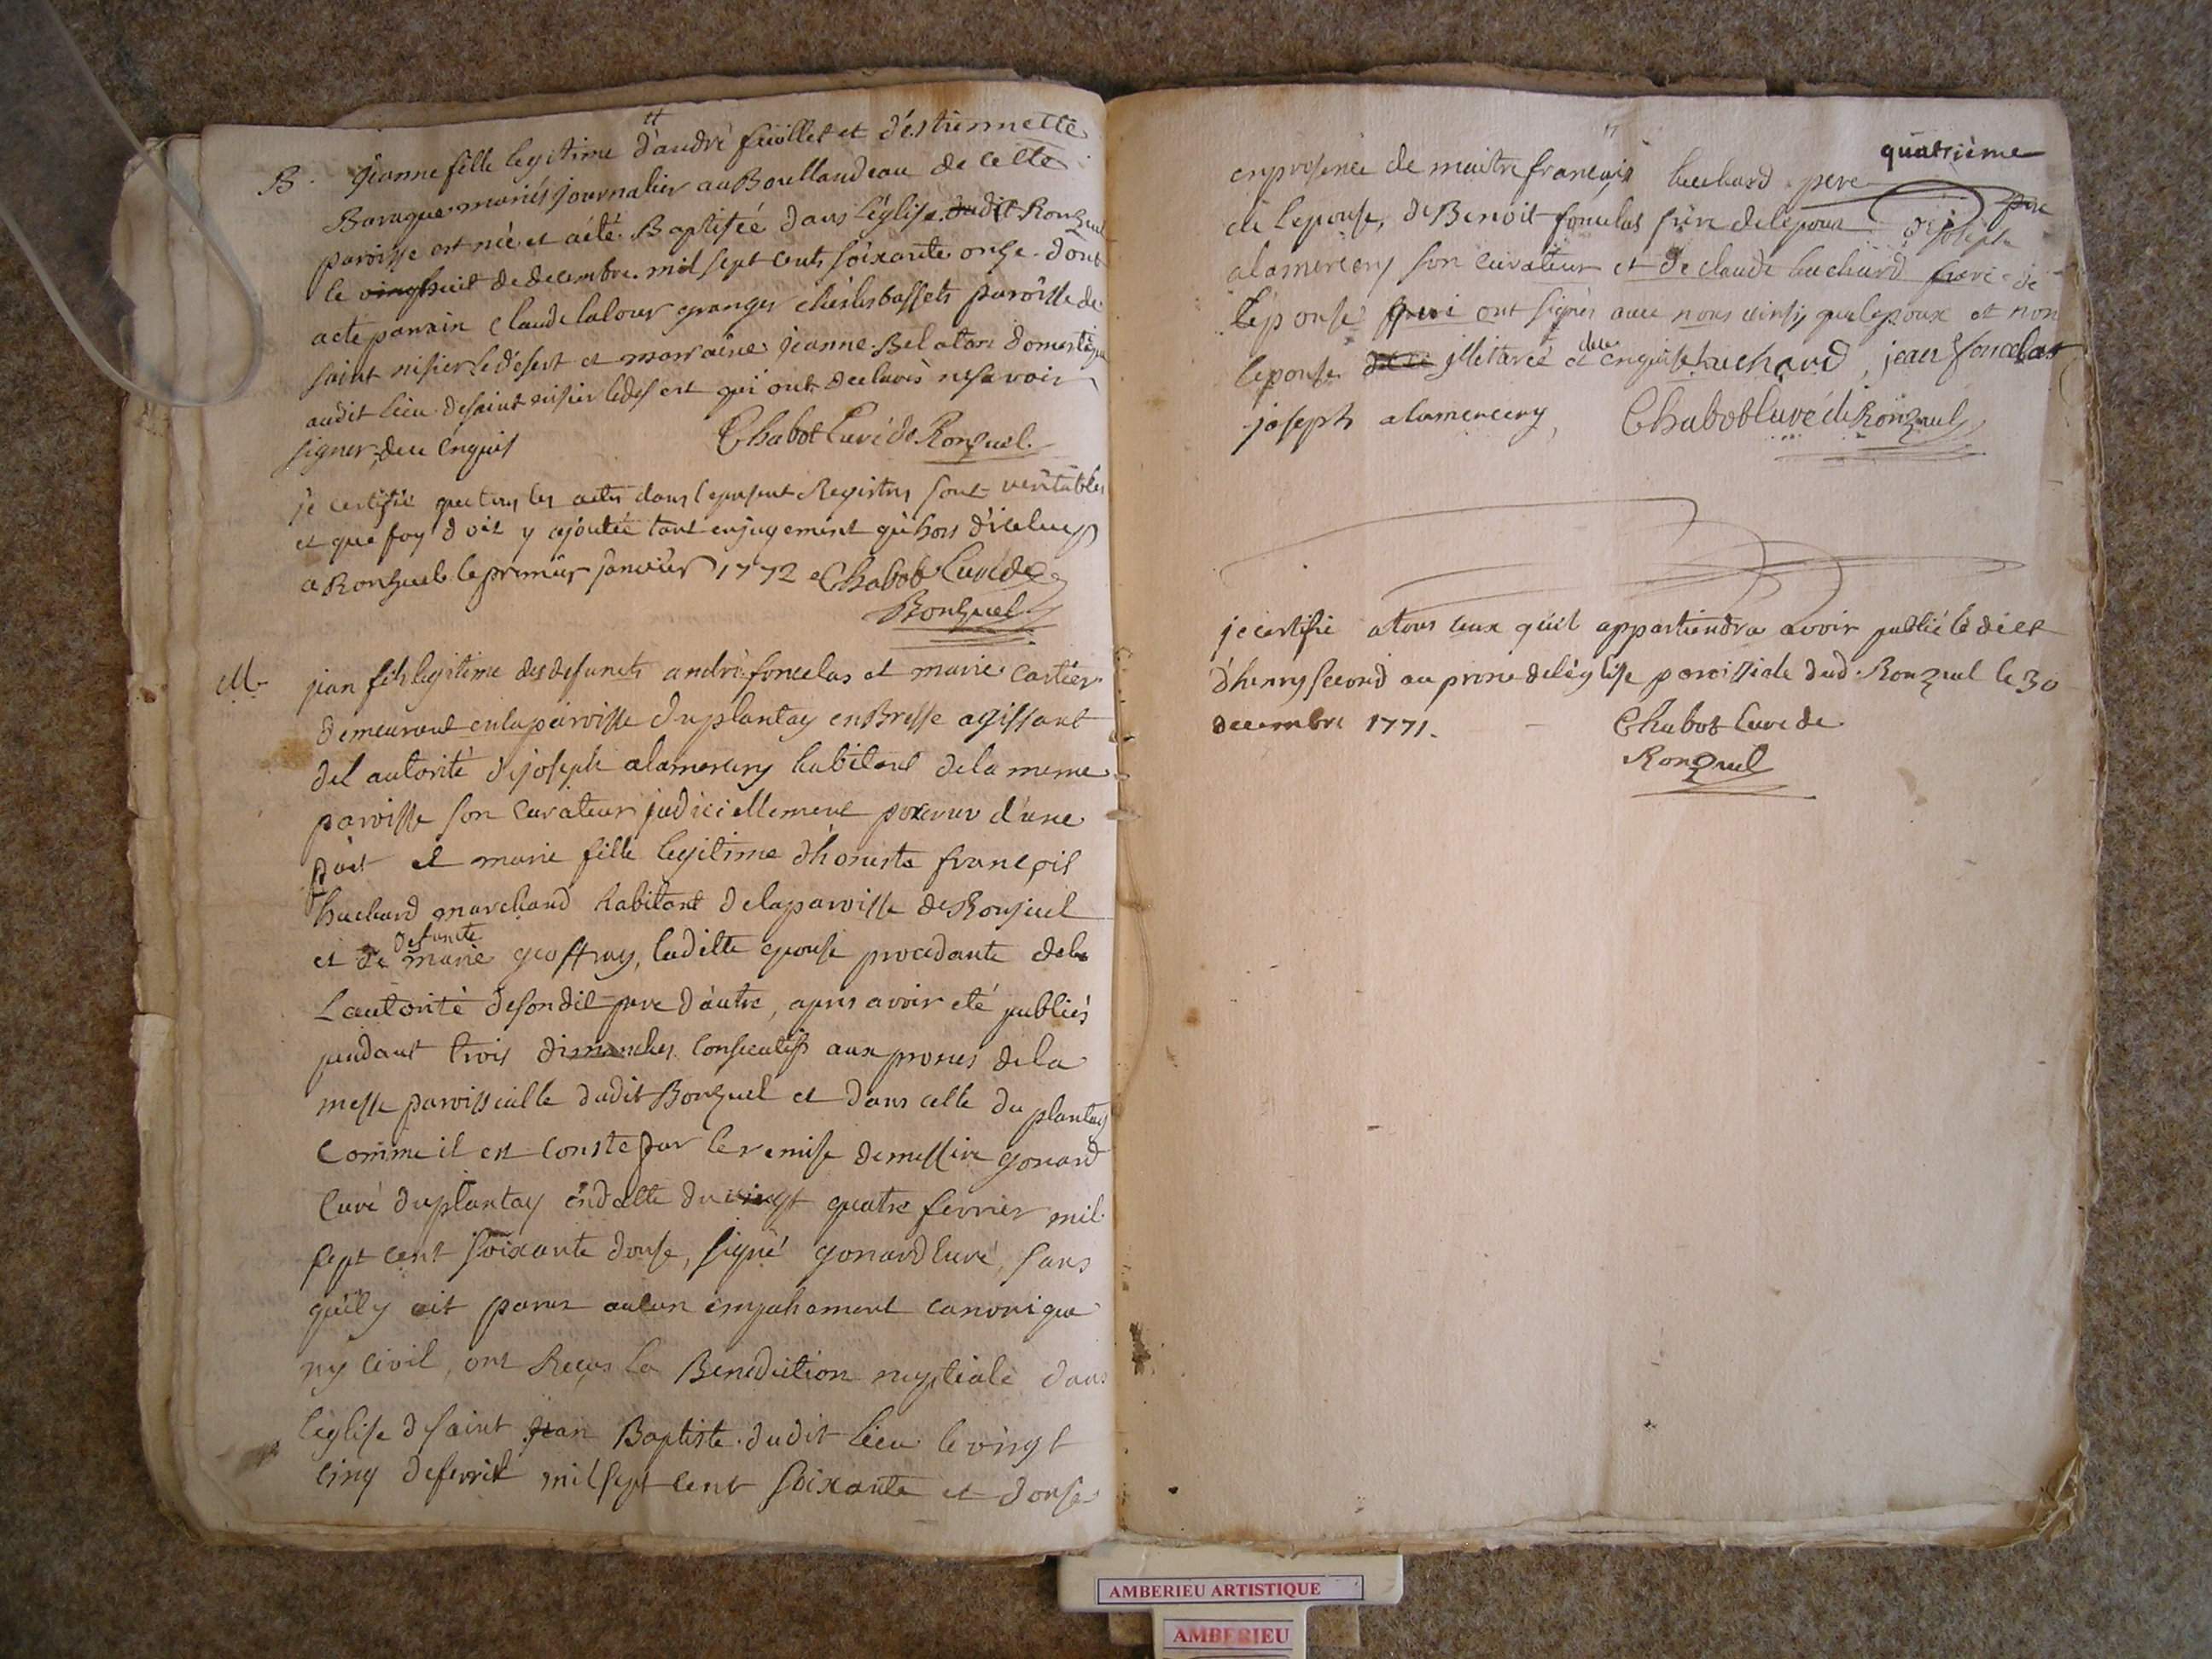 B. Jeanne fille legitime d'andré feüillet et d'éstiennette
Baraque mariés journalier au Boullandeau de cette
paroisse est née et aété Baptisée dans l'église dudit Ronzuel
le vingthuit de decembre mil sept cents soixante onze. dont
acte parrain Claude lalour granger chés les bassets paroisse de
saint nisier le desert et marraine jeanne Belatan domestique
audit lieu de saint nisier ledesert qui ont declarés ne savoir
signer dece enquis Chabot Curé de Ronzuel.
je certifie que tous les actes dans le present Registres sont veritables
et que foy doit y ajoutée tant enjugement qu'hors d'iceluy
a Ronzuel le premier janvier 1772 Chabot Curé de
Ronzuel
M. jean fils legitime des defuncts andré foncelas et marie Cartier
demeurant enlaparoisse du plantay en Bresse agissant
del autorité de joseph alamercery habitant dela meme
paroisse son Curateur judiciellement pourvu d'une
part et marie fille legitime d'honeste françois
huchard marchand habitant delaparoisse de Ronzuel
et de defuncte marie geoffray, laditte epouse procedante dela
L'autorité desondit pere d'autre, apres avoir eté publiés
pendant trois dimanches consecutifs aux prones de la
messe paroissialle dudit Ronzuel et dans celle du plantay
Comme il est conste par le remise de messire gonard
Curé duplantay endatte du vingt quatre fevrier mil
sept cent soixante douse, signé gonard Curé, sans
qu'il y ait parus aucun empechement canonique
ny civil, ont Reçus la Benediction nuptiale dans
leglise de saint jean Baptiste dudit lieu le vingt
cinq de fevrier mil sept cent soixante et douse
quatrième
enpresence de maitre françois huchard pere
de lepouse, de Benoit foncelas frere delépoux de joseph
alamercery son curateur et de claude huchard frere de
l'épouse qui ont signés avec nous ainsi que lepoux et non
lepouse illitarée de ce enquise huchard, jean foncelas
joseph alamercery, Chabot Curé de Ronzuel
je certifie atous ceux qu'il appartiendra avoir publié lédict
d'henry second au prone del'église paroissiale dud. Ronzuel le 30
decembre 1771. Chabot Curé de
Ronzuel
AMBERIEU ARTISTIQUE
AMBERIEU